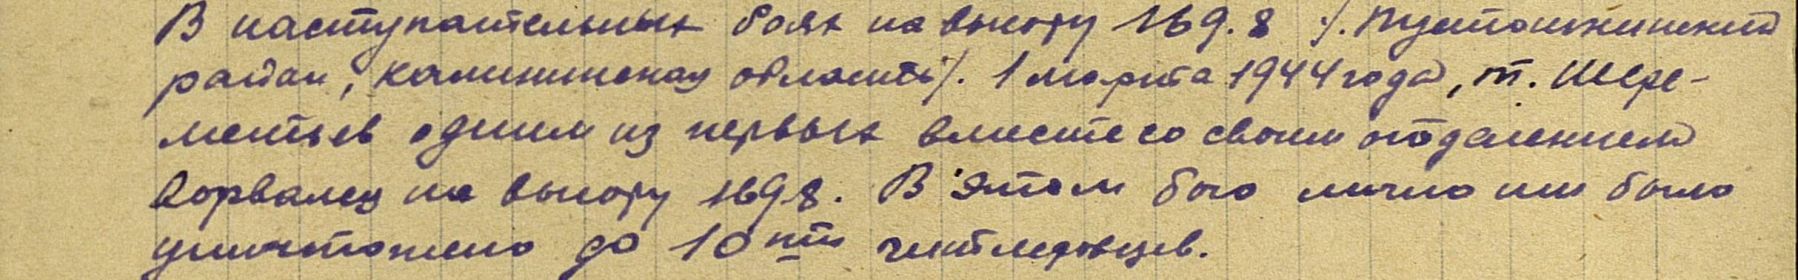 В наступательных боях на высоту 169.8 /. Пустошкинский
район, Калининская область/. 1 марта 1944 года, т. Шере-
ментьев одним из первых вместе со своим отделением
ворвался на высоту 169.8. В этом бою лично им было
уничтожено до 10 ти гитлеровцев.